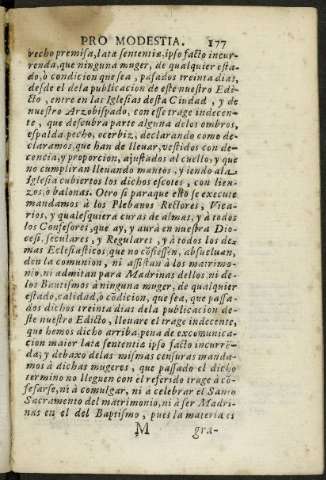 PRO MODESTIA. 177
recho premisa, lata sententiæ, ipso facto incur-
renda, que ninguna muger, de qualquier esta-
do, ò condicion que sea, pasados treinta dias,
desde el de la publicacion de este nuestro Edi-
cto, entre en las Iglesias desta Ciudad, y de
nuestro Arzobispado, con esse trage indecen-
te, que descubra parte alguna de los ombros,
espalda, pecho, ò cerbiz, declarando como de-
claramos, que han de llevar, vestidos con de-
cencia, y proporcion, ajustados al cuello; y que
no cumpliràn llevando mantos, y iendo al a
Iglesia cubiertos los dichos escotes, con lien-
zos, o balonas. Otro si para que esto se execute
mandamos à los Plebanos Rectores, Vica-
rios, y qualesquiera curas de almas, y à todos
los Confesores, que ay, y aurà en nuestra Dio-
cesi, seculares, y Regulares, y à todos los de-
mas Eclesiasticos que no cõfiessen, absuelvan,
den la comunion, ni assistan à los matrimo-
nio, ni admitan para Madrinas dellos, ni de
los Bautismos à ninguna muger, de qualquier
estado, calidad, o cõdicion, que sea, que passa-
dos dichos treinta dias de la publicacion de-
ste nuestro Edicto, llevare el trage indecente,
que hemos dicho arriba, pena de excomunica-
cion maior lata sententia ipso facto incurrē-
da, y debaxo de las mismas censuras manda-
mos à dichas mugeres, que passado el dicho
termino no lleguen con el referido trage à cõ-
fesarse, ni à comulgar, ni à celebrar el Santo
Sacramento del matrimonio, ni à ser Madri-
nas en el del Baptismo, pues la materia es
M gra-